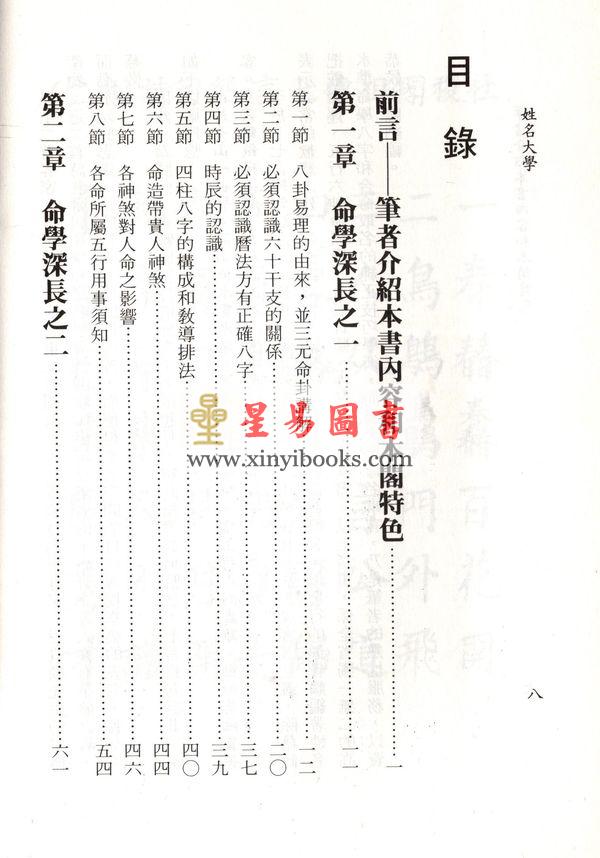 姓名大學
八
目錄
前言——筆者介紹本書內容和本閣特色……一
第一章 命學深長之一……一一
第一節 八卦易理的由來，並三元命卦講解……一二
第二節 必須認識六十干支的關係……二〇
第三節 必須認識曆法方有正確八字……三七
第四節 時辰的認識……三九
第五節 四柱八字的構成和教導排法……四〇
第六節 命造帶貴人神煞……四四
第七節 各神煞對人命之影響……四六
第八節 各命所屬五行用事須知……五四
第二章 命學深長之二……六一
星易圖書
www.xinyibooks.com